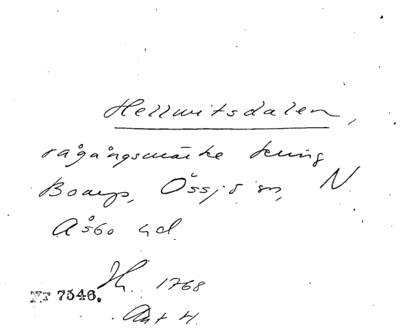 Hellwitsdalen,
rågångsmärke kring
Boarp, Össjö sn, N
Åsbo hd.
Jh. 1768
Akt 4.
NT 7546.